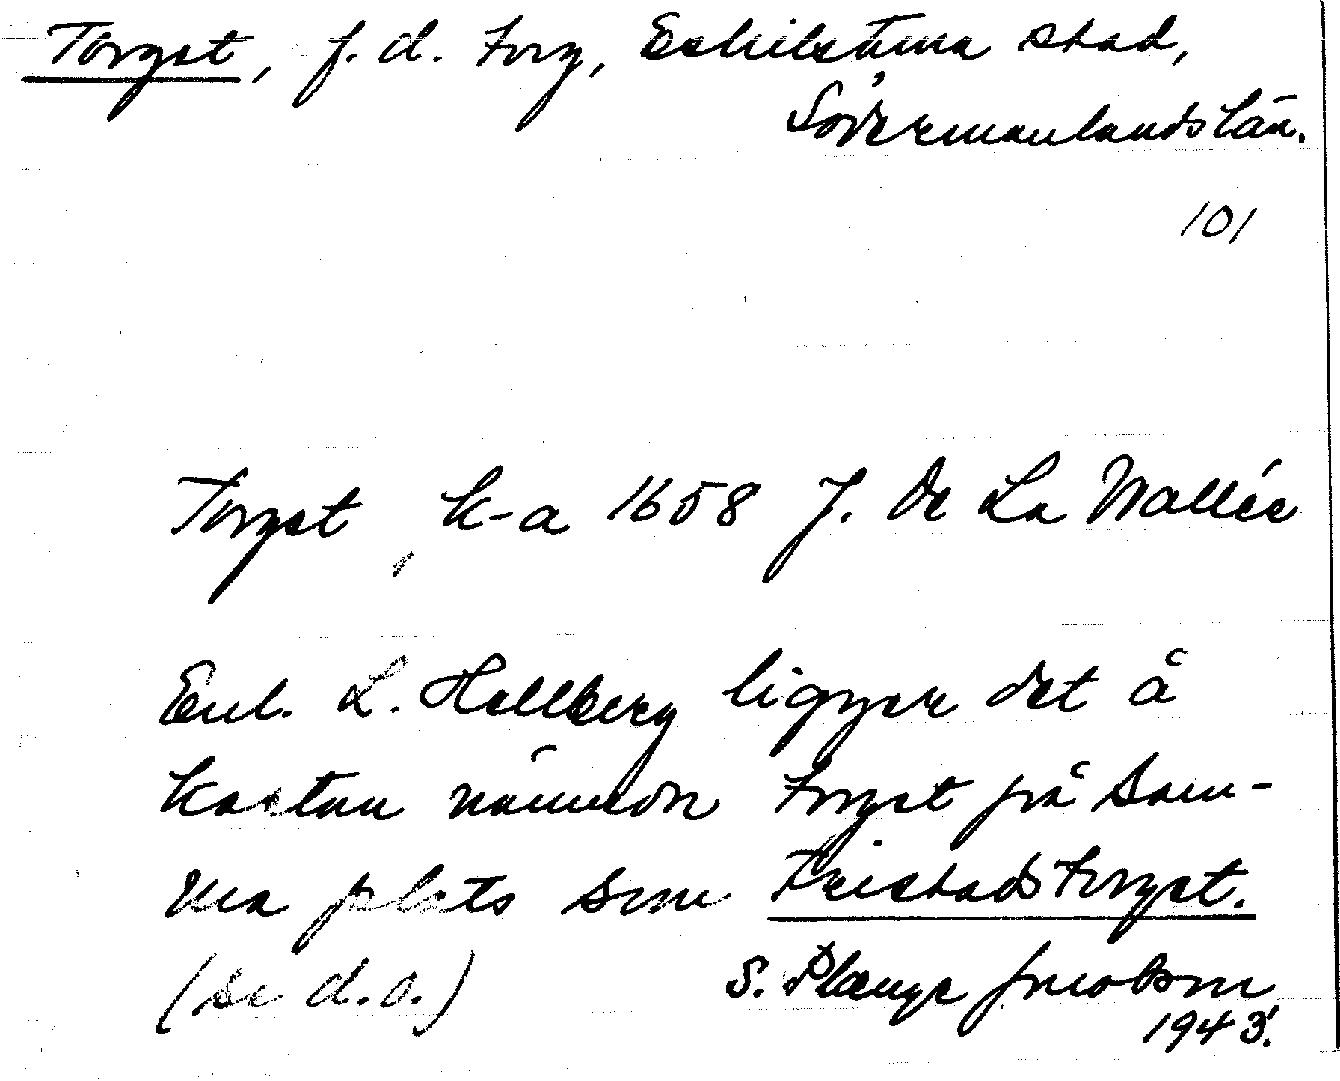 Torget, f. d. torg, Eskilstuna stad,
Södermanlands län.
101
Torget k-a 1658 J. de La Wallée
Enl. L. Hellberg ligger det å
kartan nämnda torget på sam-
ma plats som Fristadstorget.
(se d.o.)
S. Plænge Jacobson
1943.